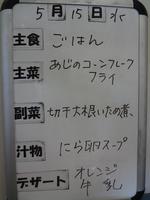 5月15日水
主食 ごはん
主菜 あじのコーンフレーク
フライ
副菜 切干大根いため煮、
汁物 にら卵スープ
デザート オレンジ
牛乳